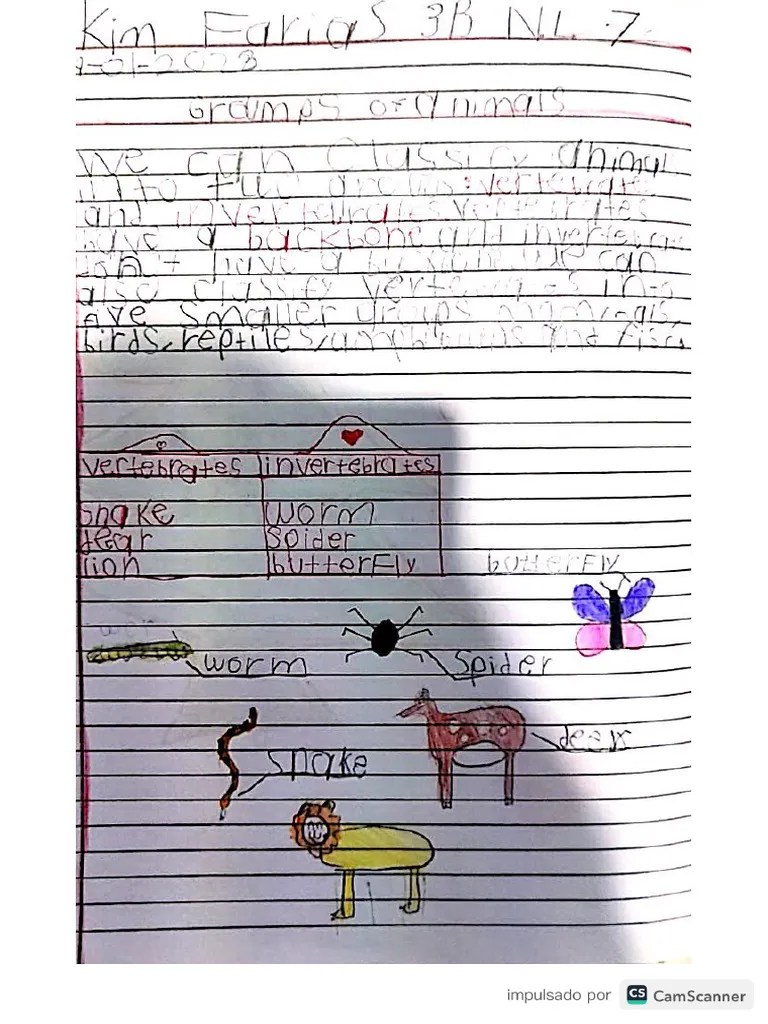 Kim Farias 3B N.L. 7
-01-2023
Groumps of animals
We can classify animal
into two groups: vertebrate
and invertebrates. vertebrates
have a backbone and invertebra
don't have a We can
also classify in
five smaller groups mammals,
birds, reptiles, amphibians and fish
vertebrates invertebrates
snake worm
dear spider
lion butterfly
butterfly
worm spider
snake dear
impulsado por CS CamScanner